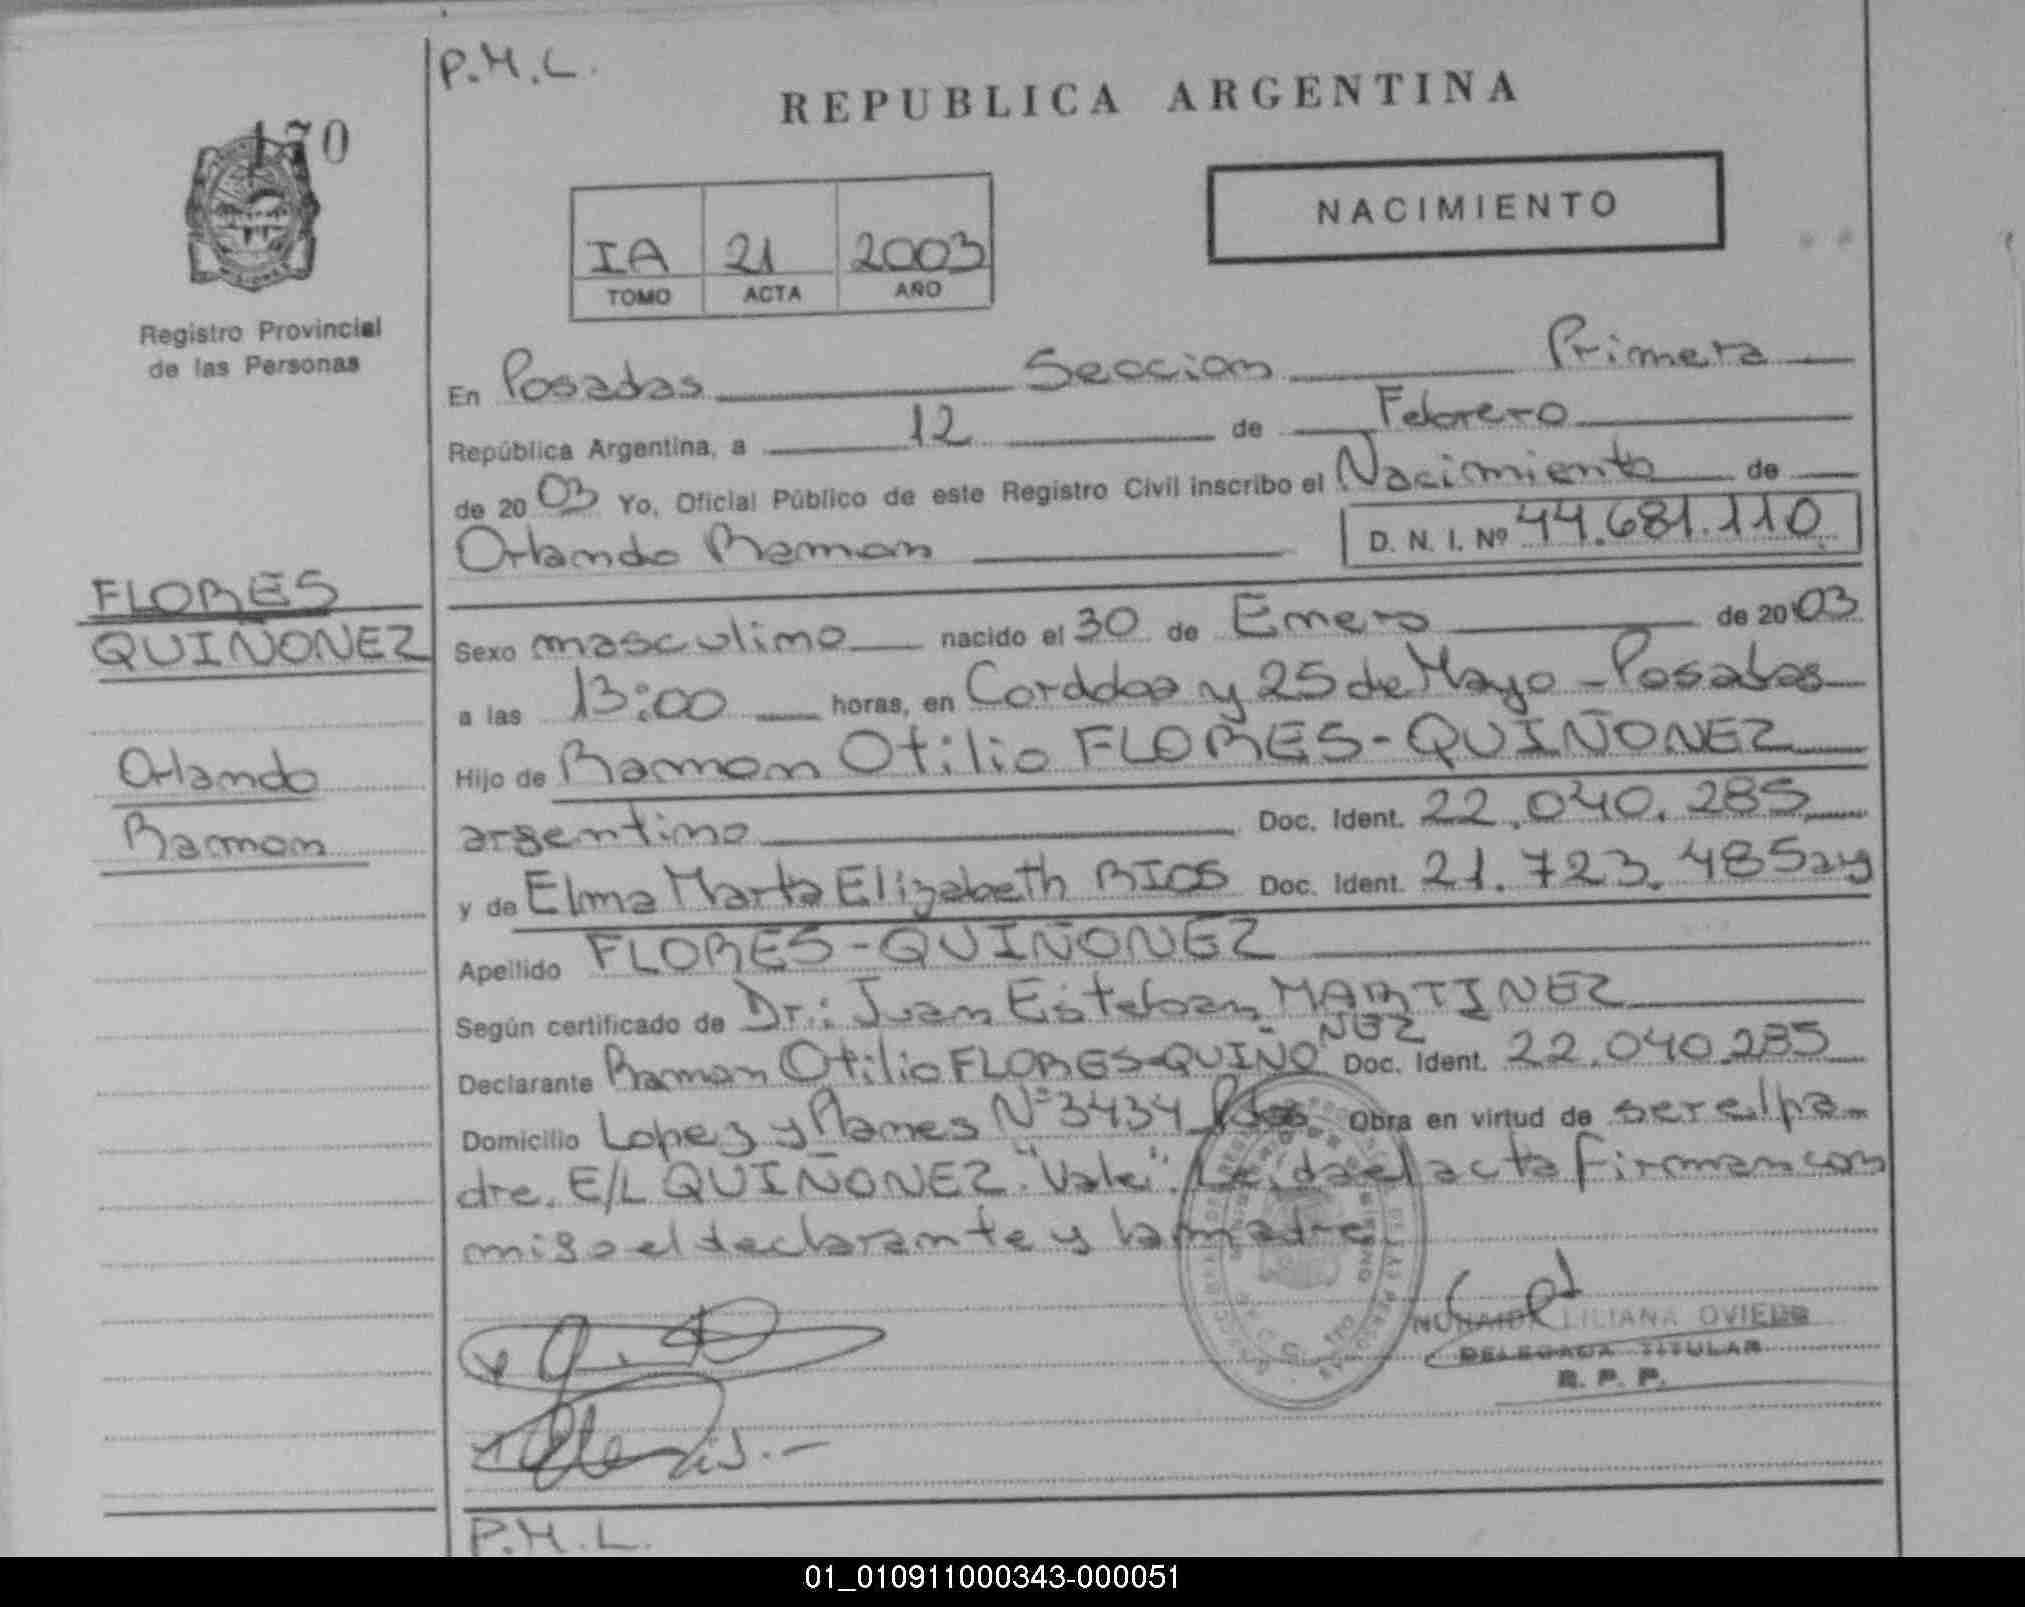 P.M.L.
170
REPUBLICA ARGENTINA
NACIMIENTO
IA 21 2003
TOMO ACTA AÑO
Registro Provincial
de las Personas
En Posadas Seccion Primera
República Argentina, a 12 de Febrero
de 2003 Yo, Oficial Público de este Registro Civil inscribo el Nacimiento de
Orlando Ramon D. N. I. Nº 44.681.110
FLORES
QUIÑONEZ
Orlando
Ramon
Sexo masculino nacido el 30 de Enero de 2003
a las 13:00 horas, en Cordoba y 25 de Mayo - Posadas
Hijo de Ramon Otilio FLORES-QUIÑONEZ
argentino Doc. Ident. 22.040.285
y de Elma Marta Elizabeth RIOS Doc. Ident. 21.723.485 ay
Apellido FLORES-QUIÑONEZ
Según certificado de Dr: Juan Esteban MARTINEZ
Declarante Ramon Otilio FLORES-QUIÑONEZ Doc. Ident. 22.040.285
Domicilio Lopez y Planes Nº 3434 Pdas. Obra en virtud de ser el pa-
dre. E/L QUIÑONEZ. "Vale". Leida el acta firman con
migo el declarante y la madre
LILIANA OVIEDO
DELEGADA TITULAR
R. P. P.
P.M.L.
01_010911000343-000051